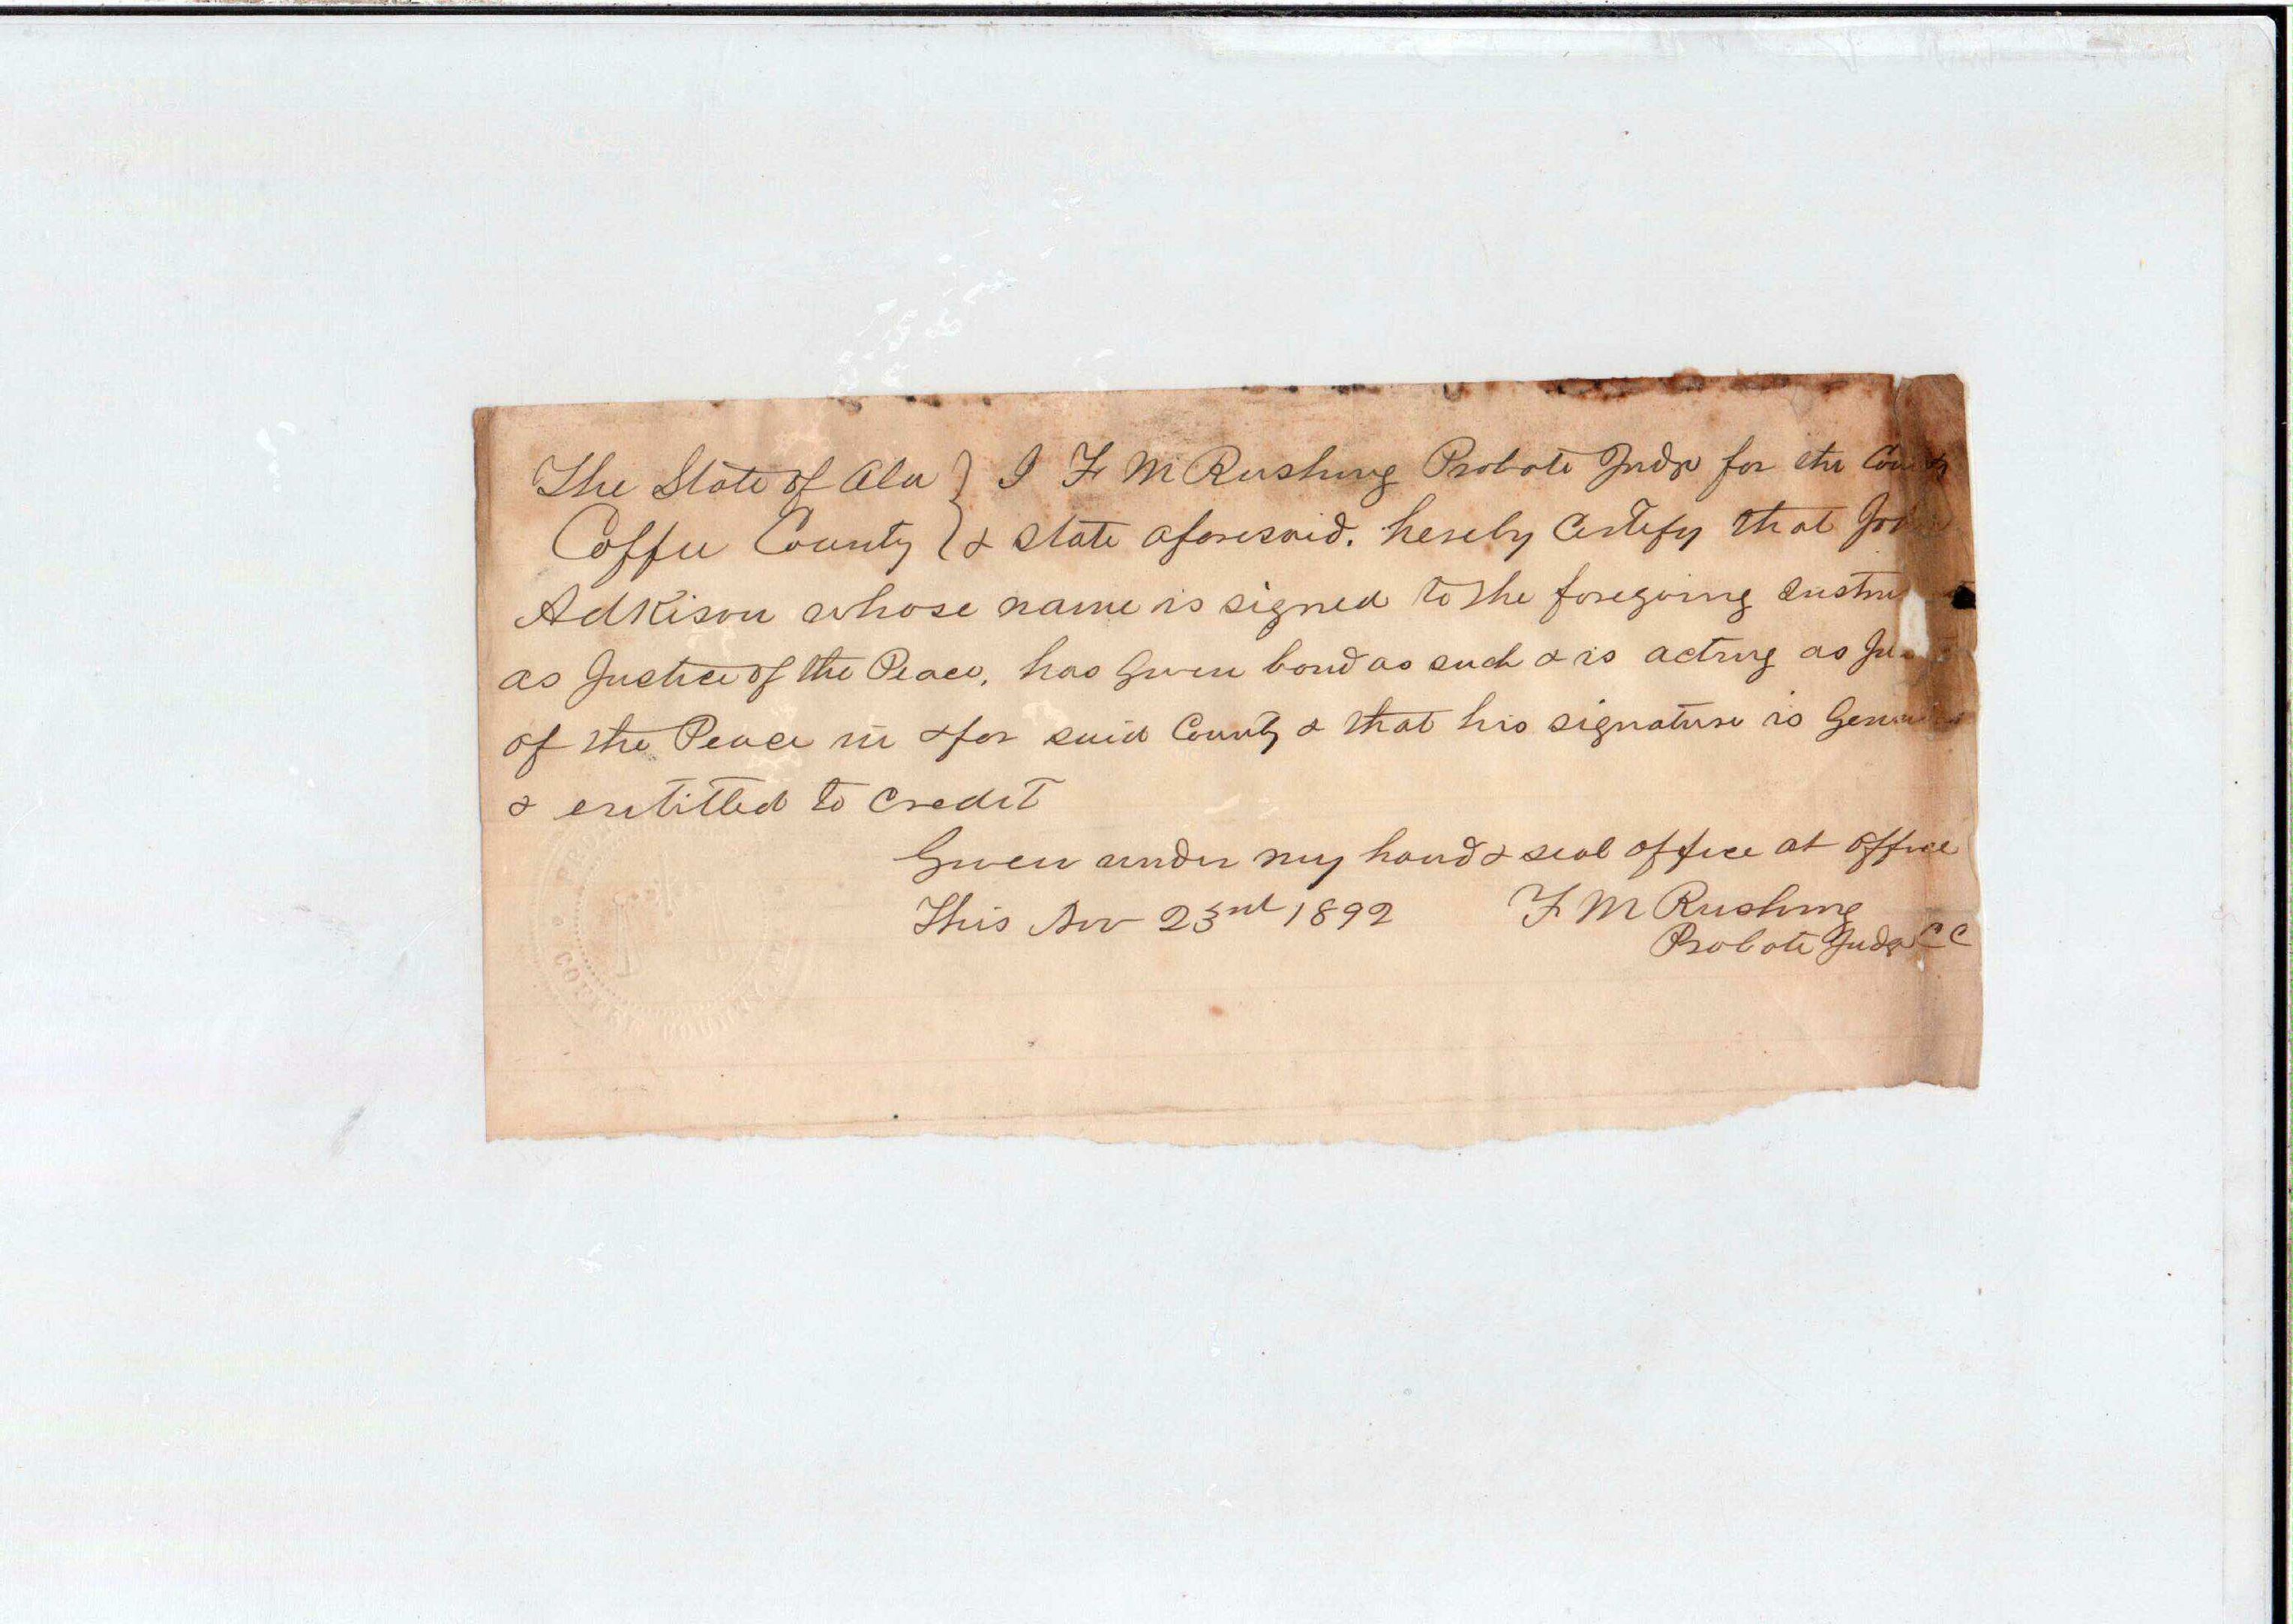 The State of Ala } I F M Rushing Probate Judge for the County
Coffee County } & State aforesaid. hereby Certify that
Adkison whose name is signed to the foregoing
as Justice of the Peace, has Given bond as such & is acting as
of the Peace in & for said County & that his signature is Genuine
& entitled to Credit
Given under my hand & seal office at office
This Nov 23rd 1892 F M Rushing
Probate Judge C C
COFFEE COUNTY